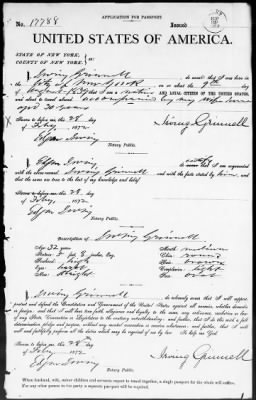 APPLICATION FOR PASSPORT
No. 17788 Issued
UNITED STATES OF AMERICA.
STATE OF NEW YORK,
COUNTY OF NEW YORK.
I, Irving Grinnell do swear that I was born in
the City of New York on or about the 9th day
of August 1839 that I am a native AND LOYAL CITIZEN OF THE UNITED STATES
and about to travel abroad accompanied by my wife
aged 30 years
Sworn to before me this 28
day of Feby. 1872
Irving Grinnell
Notary Public.
with the above-named Irving Grinnell
to the best of my knowledge and belief
Sworn to before me this 28
day of Feby. 1872
Notary Public.
Description of Irving Grinnell
Age 32 years
Stature 5 feet 8 inches, Eng.
Forehead high
Eyes
Nose straight
Mouth medium
Chin round
Hair brown
Complexion light
Face
I, Irving Grinnell do solemnly swear that I will support,
protect and defend the Constitution and Government of the United States against all enemies, whether domestic
or foreign; and that I will bear true faith, allegiance and loyalty to the same, any ordinance, resolution or law
of any State, Convention or Legislature to the contrary notwithstanding; and further, that I do this with a full
determination, pledge and purpose, without any mental reservation or evasion whatsoever; and further, that I will
well and faithfully perform all the duties which may be required of me by law. So help me God.
Sworn to before me this 28th
day of Feby. 1872
Irving Grinnell
Notary Public.
When husband, wife, minor children and servants expect to travel together, a single passport for the whole will suffice.
For any other person in the party a separate passport will be required.